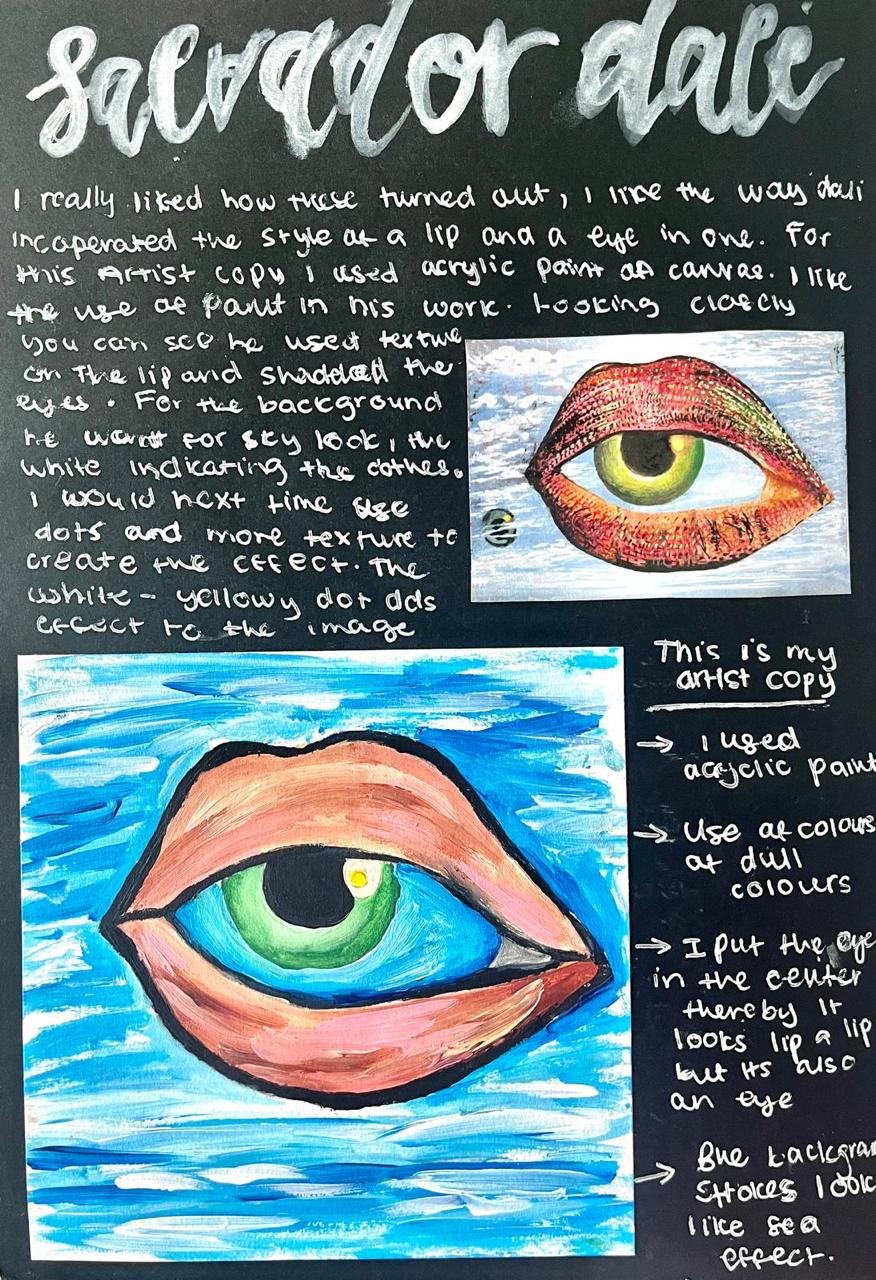 salvador dali
I really liked how these turned out, I like the way dali
incoperated the style at a lip and a eye in one. For
this Artist copy I used acrylic paint on canvas. I like
the use of paint in his work. Looking closely
you can see he used texture
on the lip and shadded the
eyes. For the background
he want for sky look, the
white indicating the clothes.
I would next time use
dots and more texture to
create the effect. The
white - yellowy dot dds
effect to the image
This is my
artist copy
→ I used
acyclic paint
→ Use of colours
at dull
colours
→ I put the eye
in the center
thereby it
looks lip a lip
but its also
an eye
→ Blue backgrou
strokes look
like sea
effect.